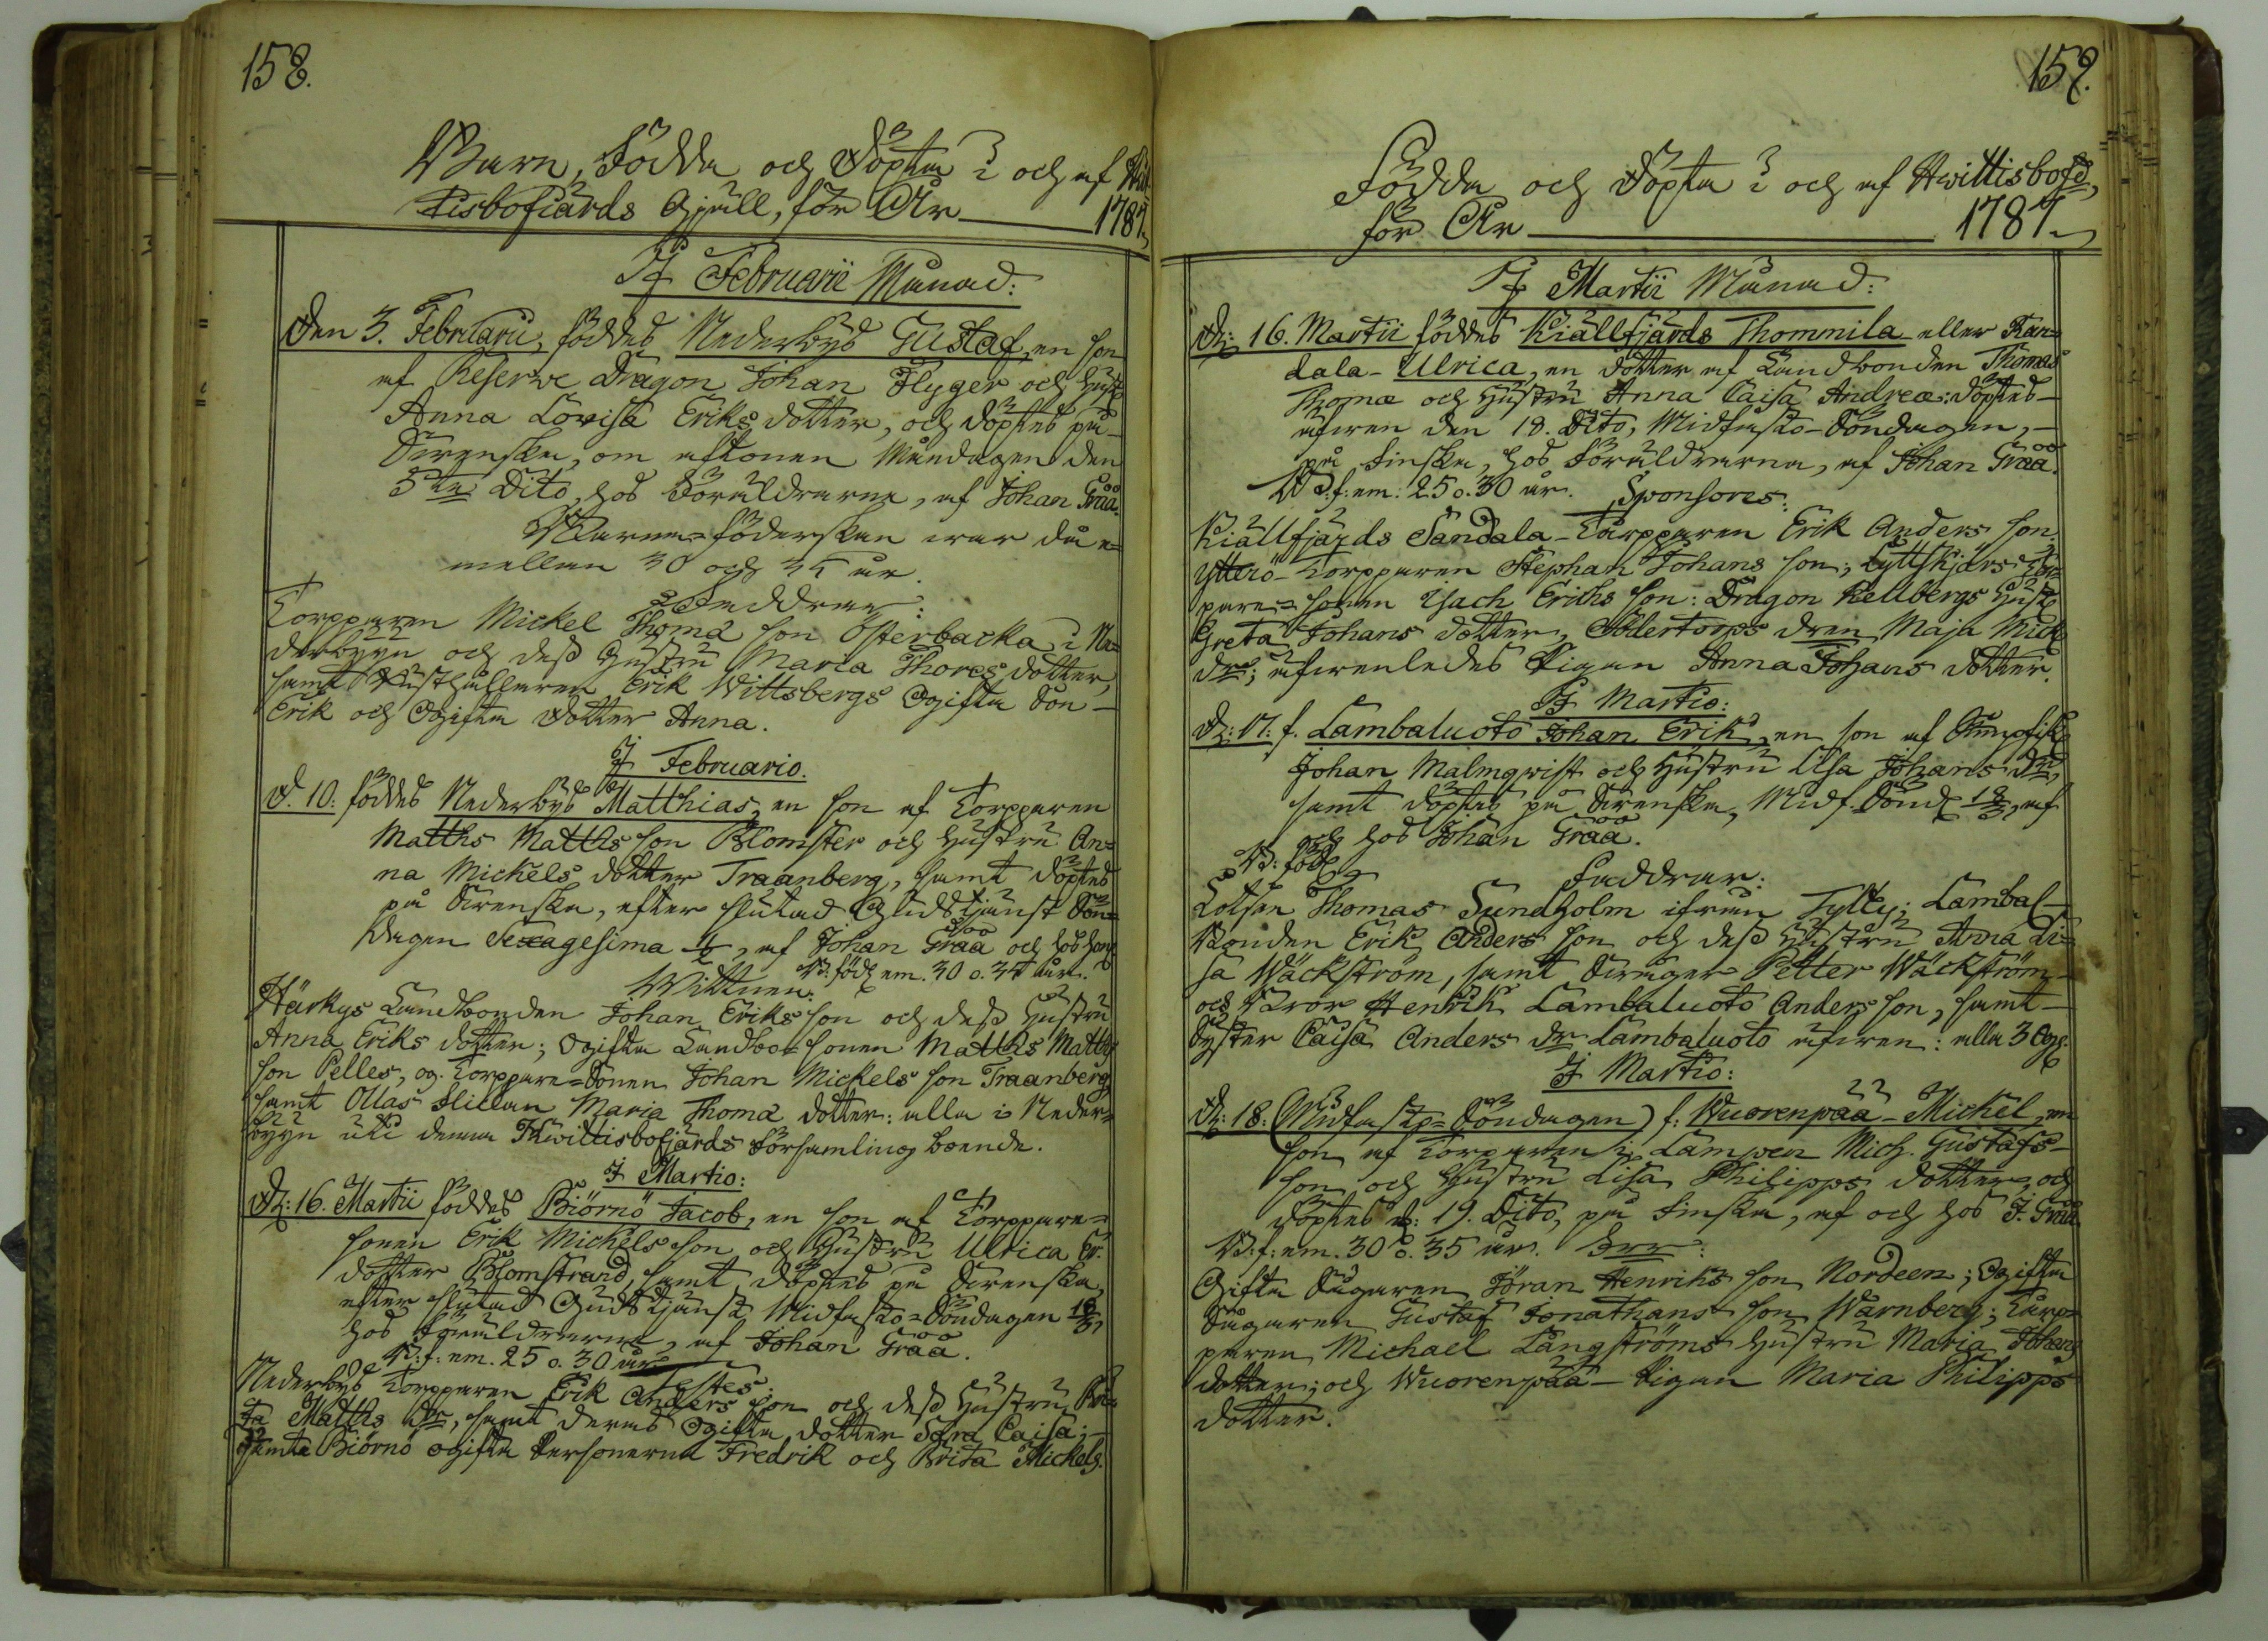 158.
Barn, Födda och Döpta i och af Hvit
tisbofiärds Gjäll, för År 1787.
J Februarii Månad:
Den 3. Februarii, föddes Nederbys Gustaf, en son
af Reserve Dragon Johan Flyger och Hust.
Anna Lovisa Eriks dotter, och döptes på
Svenska, om aftonen Måndagen den
5te Dito, hos Föräldrarne, af Johan Graa.
Barna-föderskan war då e=
mellan 30 och 35 år.
Faddrar:
Torpparen Mickel Thomæ son Österbacka i Ne=
derbyyn och dess Hustru Maria Thores dotter,
samt Rusthållaren Erik Wittsbergs Ogifta Son
Erik och Ogifta dotter Anna.
J Februario.
d. 10. föddes Nederbys Matthias, en son af Torpparen
Matths Matths son Blomster och Hustru An=
na Mickels dotter Traanberg, samt döptes
på Svenska, efter slutad Gudstjänst Sön=
dagen Sexagesima, af Johan Graa och hos
B. föd. em. 30 o. 35 år.
Wittnen:
Härkys Landbonden Johan Eriks son och dess Hustru
Anna Eriks dotter; Ogifta Landbo=sonen Matths Matths
son Pelles, og. Torppare=Sonen Johan Mickels son Traanberg
samt Ollas Flickan Maria Thomæ dotter: alla i Neder=
byyn uti denna Hwittisbofjärds Församling boende.
J Martio:
d: 16. Martii föddes Biörnö Jacob, en son af Torppare=
sonen Erik Mickels son och Hustru Ulrica Er.
dotter Blomstrand, samt döptes på Svenska
efter slutad Gudstjänst Midfasto=Söndagen 18/3,
hos Föräldrarne, af Johan Graa.
B: f: em. 25 o. 30 år
Testes:
Nederbys Torpparen Erik Anders son och dess Hustru Bri=
ta Matths dr, samt deras Ogifta dotter Sara Caisa;
samt Biörnö ogifta Personerna Fredrik och Brita Mickels.
159.
Födda och Döpta i och af Hwittisbofd,
för År 1787.
J Martii Månad:
d: 16. Martii föddes Kiällfjärds Thommila eller San=
dala-Ulrica, en dotter af Landbonden Thomas
Thomæ och Hustru Anna Caisa Andreæ: döptes
äfwen den 18. Dito, Midfasto-Söndagen,
på Finska, hos Föräldrarna, af Johan Graa.
B: f: em: 25 o. 30 år. Sponsores:
Kiällfjärds Sandala-Torpparen Erik Anders son.
Ytterö-Torpparen Stephan Johans son; Lyttskjärs Tor=
pare=sonen Isach Erichs son: Dragon Kellbergs Hust.
Greta Johans dotter, Södertorps dren Maja Mick.
dr; äfwenledes Pigan Anna Johans dotter.
J Martio:
d: 17: f. Lambaluoto Johan Erik, en son af
Johan Malmqwist och Hustru Lisa Johans dr,
samt döptes på Svenska, Midf. Sönd. 18/3, af
och hos Johan Graa.
B: föd.
Faddrar:
Lotsen Thomas Sundholm ifrån Lambal-
Bonden Erik Anders son och dess Hustru Anna Li=
sa Wäckström, samt Swåger Petter Wäckström
och Bror Henrik Lambaluoto Anders son, samt
Syster Caisa Anders dr Lambaluoto äfwen: alla 3 Og.
J Martio:
d: 18. (Midfasto=Söndagen) f: Wuorenpää-Mickel, en
son af Torpparen i Lampen Mich. Gustafs-
son och Hustru Lisa Philipps dotter, och
döptes d: 19. Dito, på Finska, af och hos J. Graa
B: f: em. 30 o. 35 år.
Gifta Sågaren Jöran Henriks son Nordeen; Ogifta
Sågaren Gustaf Jonathans son Warnberg; Torp=
paren Michael Långströms Hustru Maria Johans
dotter; och Wuorenpää-Pigan Maria Philipps
dotter.